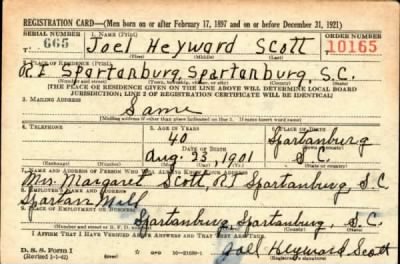 REGISTRATION CARD—(Men born on or after February 17, 1897 and on or before December 31, 1921)
SERIAL NUMBER 1. NAME (Print) ORDER NUMBER
665 Joel Heyward Scott 10165
(First) (Middle) (Last)
2. PLACE OF RESIDENCE (Print)
R.1 Spartanburg, Spartanburg, S.C.
(Number and street) (Town, township, village, or city) (County) (State)
[THE PLACE OF RESIDENCE GIVEN ON THE LINE ABOVE WILL DETERMINE LOCAL BOARD
JURISDICTION; LINE 2 OF REGISTRATION CERTIFICATE WILL BE IDENTICAL]
3. MAILING ADDRESS
Same
[Mailing address if other than place indicated on line 2. If same insert word same]
4. TELEPHONE 5. AGE IN YEARS 6. PLACE OF BIRTH
40 Spartanburg
DATE OF BIRTH (Town or county)
Aug. 23, 1901 S.C.
(Exchange) (Number) (Mo.) (Day) (Yr.) (State or country)
7. NAME AND ADDRESS OF PERSON WHO WILL ALWAYS KNOW YOUR ADDRESS
Mrs. Margaret Scott, R1 Spartanburg, S.C
8. EMPLOYER'S NAME AND ADDRESS
Spartan Mill
9. PLACE OF EMPLOYMENT OR BUSINESS
Spartanburg, Spartanburg, S.C.
(Number and street or R. F. D. number) (Town) (County) (State)
I AFFIRM THAT I HAVE VERIFIED ABOVE ANSWERS AND THAT THEY ARE TRUE.
D. S. S. Form 1
(Revised 1-1-42) GPO 16—21630-1 Joel Heyward Scott
(Registrant's signature)